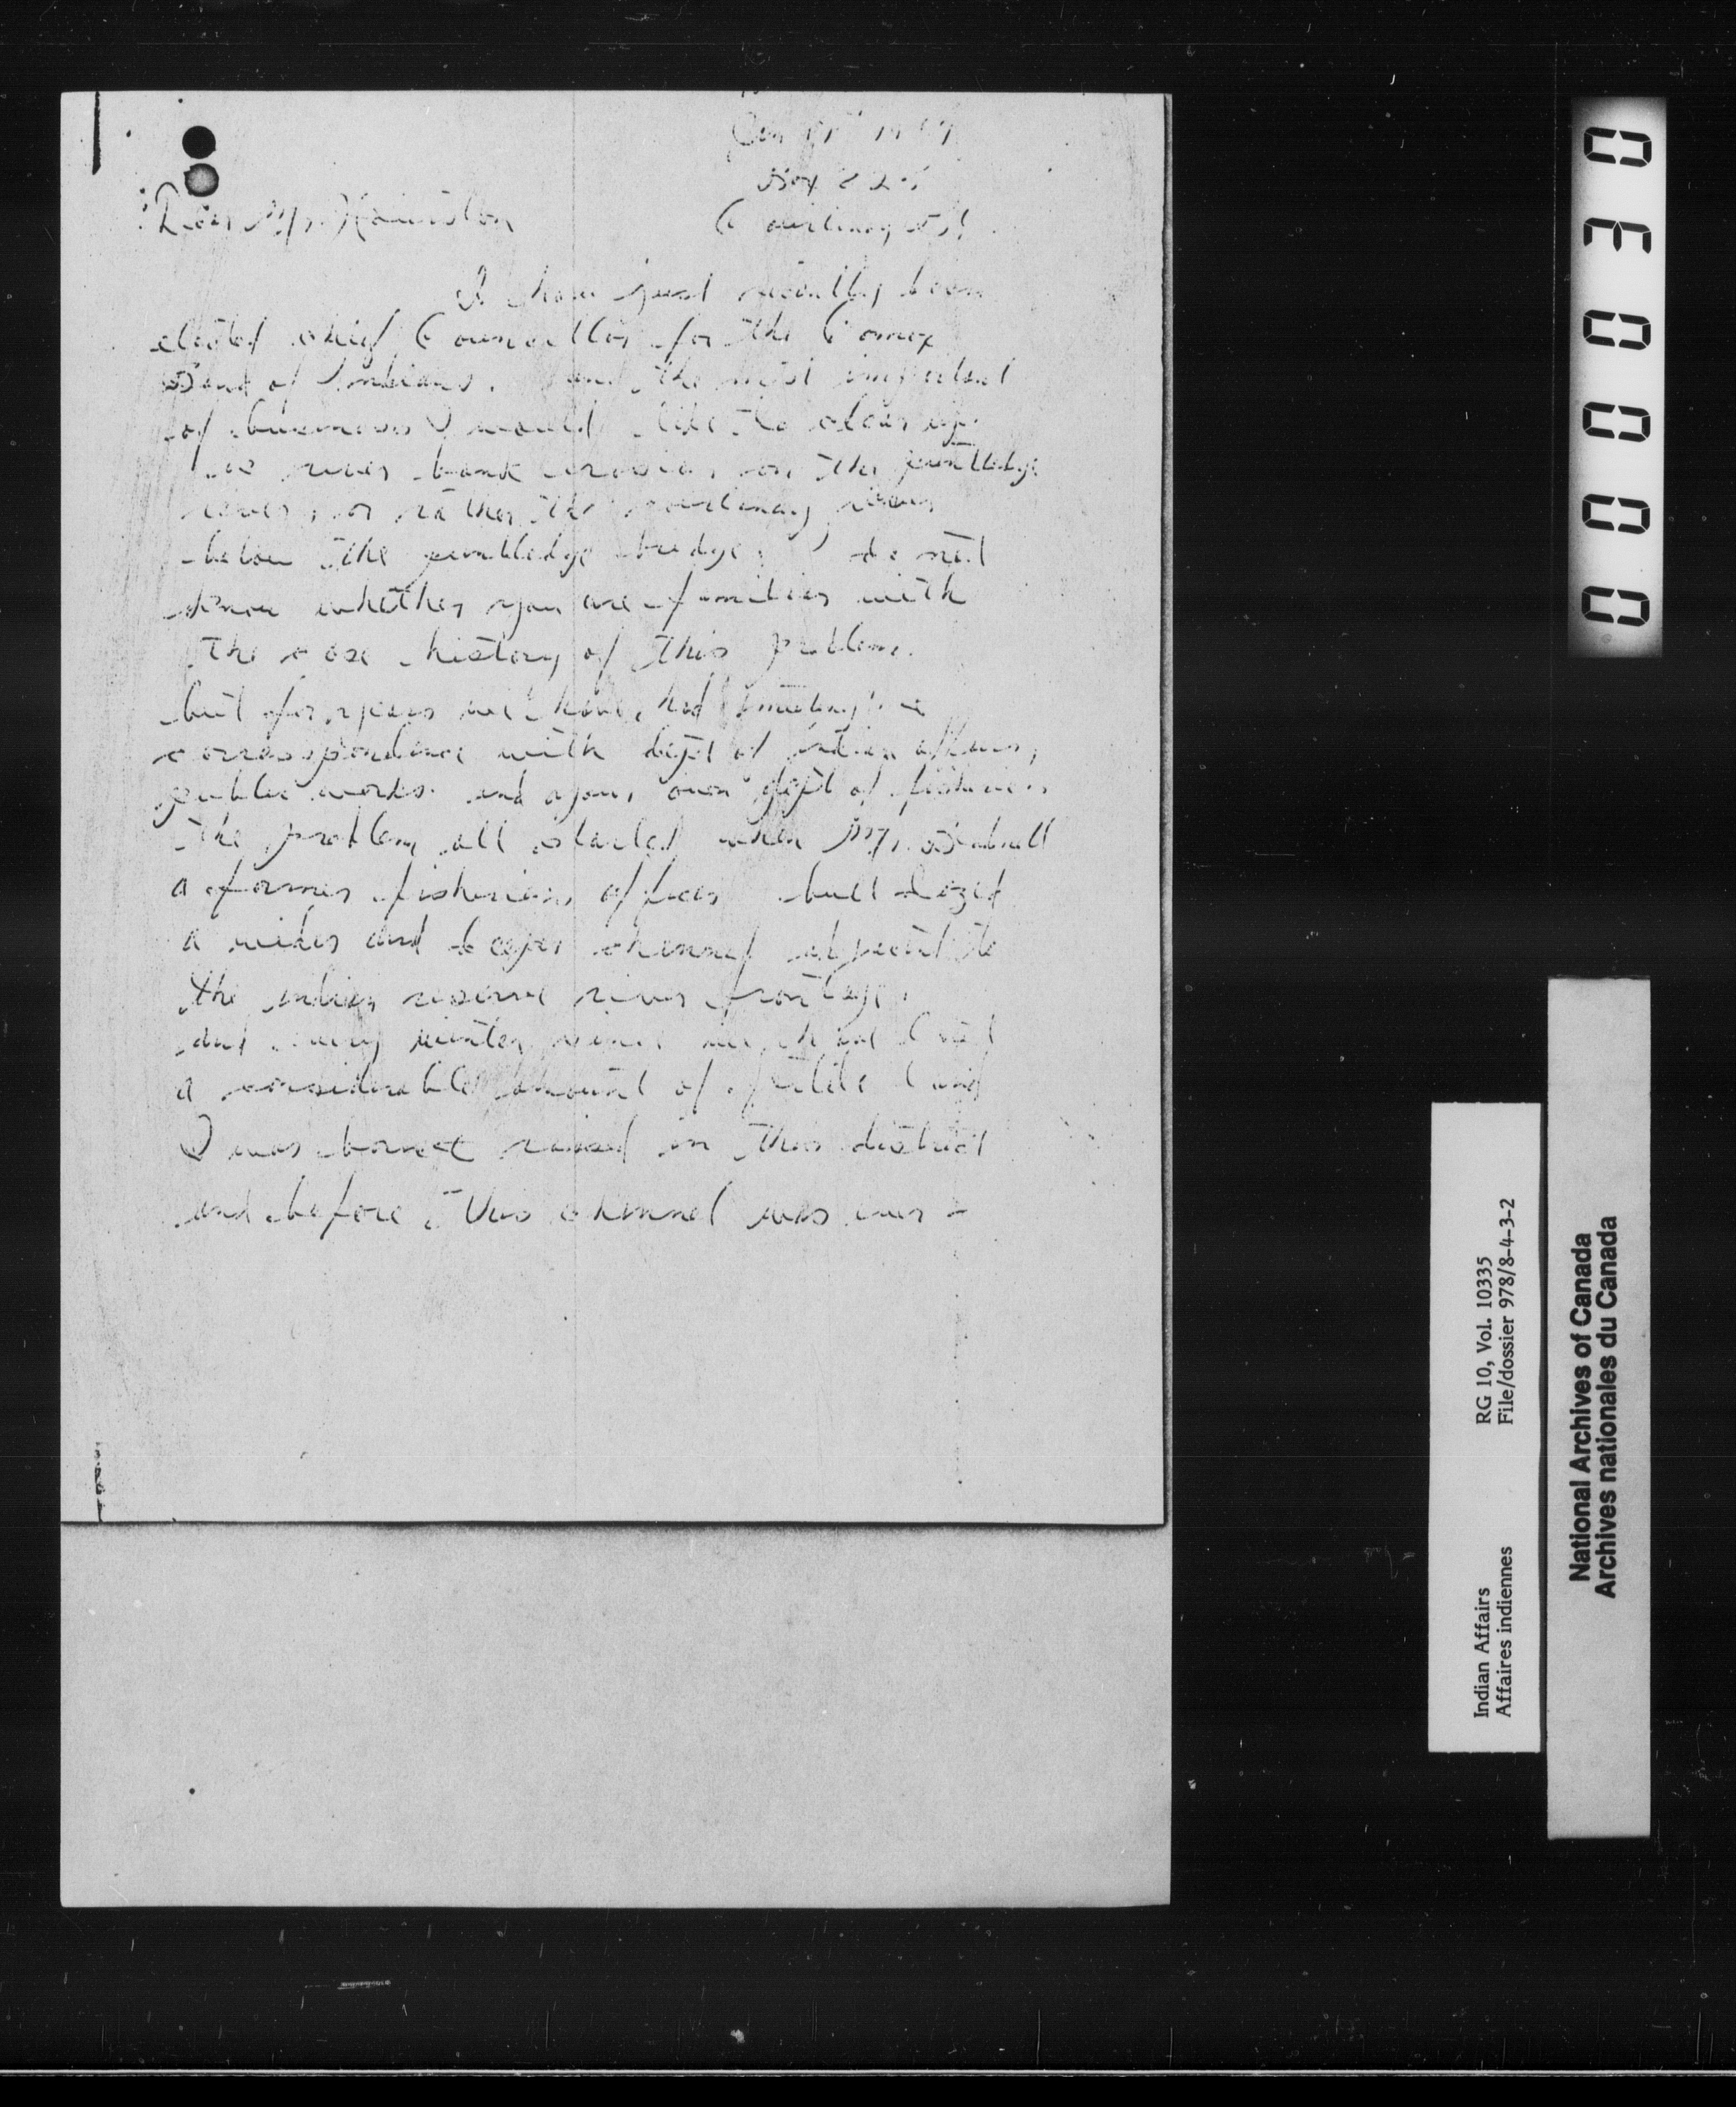 Box 225
Dear Mr.
Courtenay
I have just recently been
elected chief Councillor for the Comox
Band of Indians. and the most important
of buisness I would like to clear up
is river bank erosion, on the puntledge
river, or rather the courtenay river
below the puntledge bridge. I do not
know whether you are familier with
the case history of this problem.
but for years we have had meetings
correspondence with dept of indian affairs,
public works. and your own dept of fisheries.
The problem all started when Mr.
a former fisheries officer bull dozed
a wider and deeper channel adjacent to
the indian reserve river frontage.
and every winter since we have lost
a considerable amount of fertile land
I was born & raised in this district
and before this channel was ever
000030
RG 10, Vol. 10335
File/dossier 978/8-4-3-2
Indian Affairs
Affaires indiennes
National Archives of Canada
Archives nationales du Canada